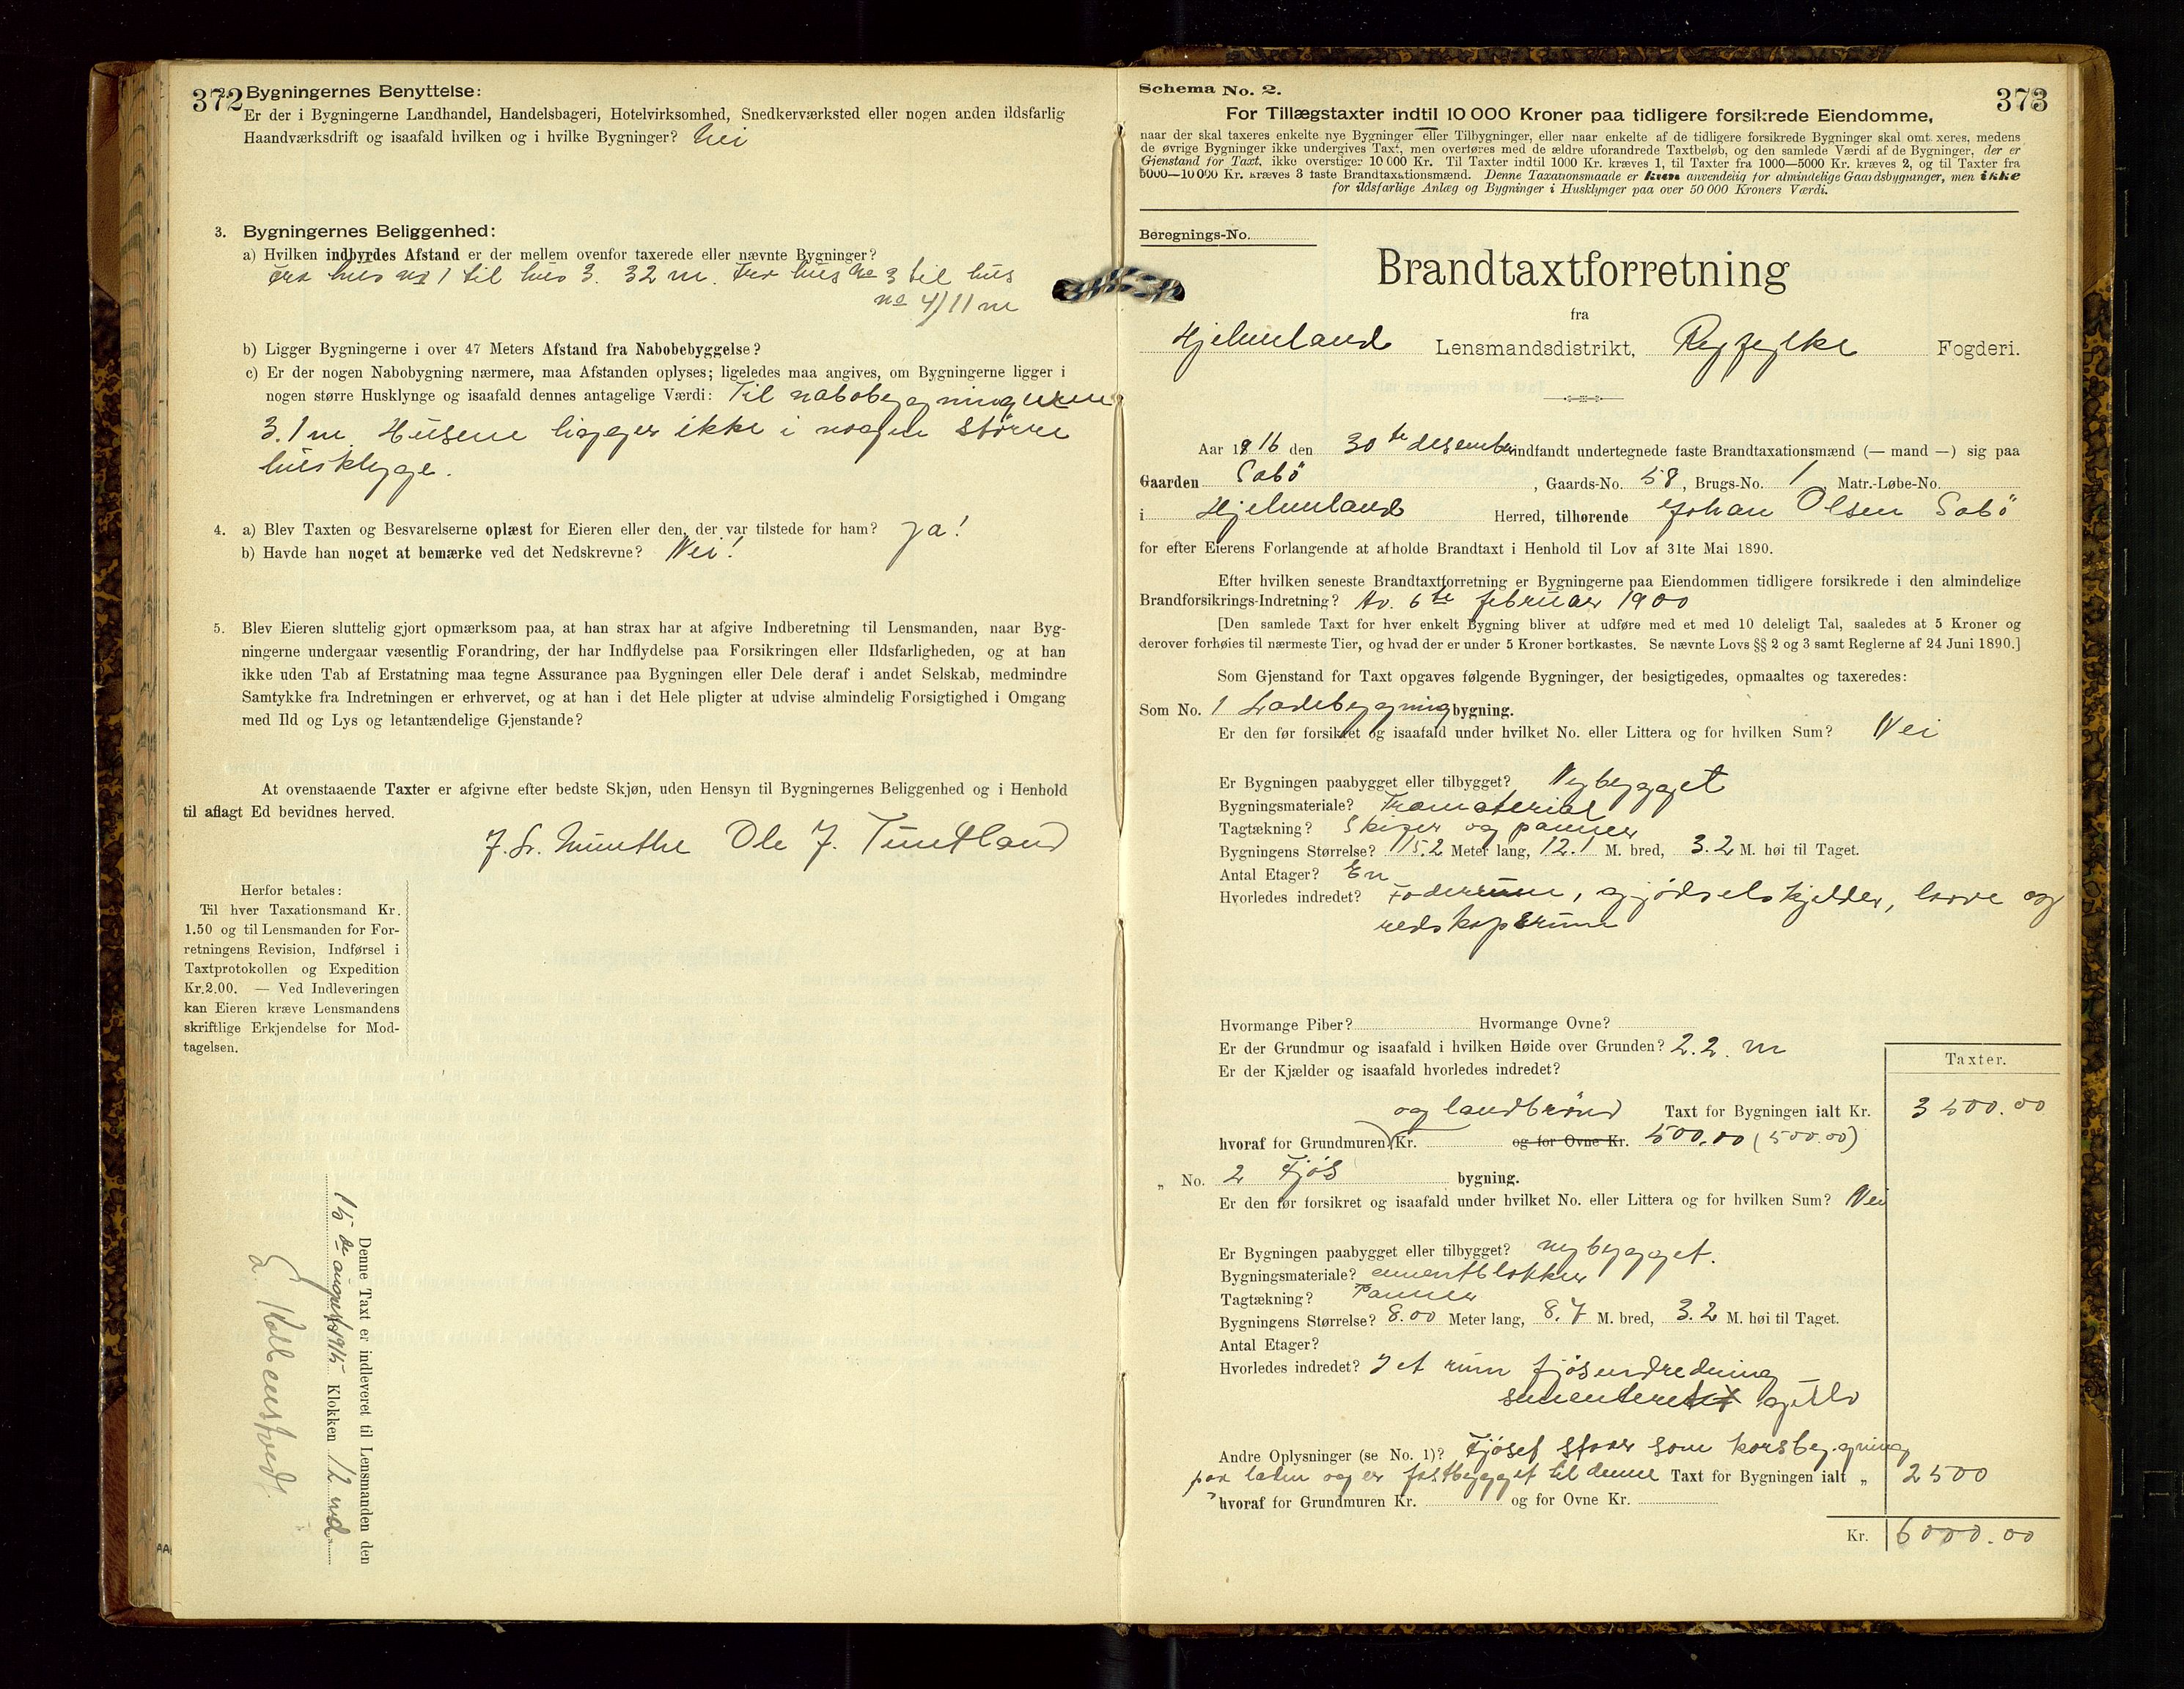 372
2. Bygningernes Benyttelse:
Er der i Bygningerne Landhandel, Handelsbageri, Hotelvirksomhed, Snedkerværksted eller nogen anden ildsfarlig
Haandværksdrift og isaafald hvilken og i hvilke Bygninger? Nei
3. Bygningernes Beliggenhed:
a) Hvilken indbyrdes Afstand er der mellem ovenfor taxerede eller nævnte Bygninger?
Fra hus no 1 til hus 3. 32 m. Fra hus no 3 til hus
no 4) 11 m
b) Ligger Bygningerne i over 47 Meters Afstand fra Nabobebyggelse?
c) Er der nogen Nabobygning nærmere, maa Afstanden oplyses; ligeledes maa angives, om Bygningerne ligger i
nogen større Husklynge og isaafald dennes antagelige Værdi: Til nabobygningerne
3.1 m. Husene ligger ikke i nogen større
husklygge.
4. a) Blev Taxten og Besvarelserne oplæst for Eieren eller den, der var tilstede for ham? Ja!
b) Havde han noget at bemærke ved det Nedskrevne? Nei!
5. Blev Eieren sluttelig gjort opmærksom paa, at han strax har at afgive Indberetning til Lensmanden, naar Byg-
ningerne undergaar væsentlig Forandring, der har Indflydelse paa Forsikringen eller Ildsfarligheden, og at han
ikke uden Tab af Erstatning maa tegne Assurance paa Bygningen eller Dele deraf i andet Selskab, medmindre
Samtykke fra Indretningen er erhvervet, og at han i det Hele pligter at udvise almindelig Forsigtighed i Omgang
med Ild og Lys og letantændelige Gjenstande?
At ovenstaaende Taxter er afgivne efter bedste Skjøn, uden Hensyn til Bygningernes Beliggenhed og i Henhold
til aflagt Ed bevidnes herved.
Munthe Ole J. Tuntland
Herfor betales:
Til hver Taxationsmand Kr.
1.50 og til Lensmanden for For-
retningens Revision, Indførsel i
Taxtprotokollen og Expedition
Kr.2.00. — Ved Indleveringen
kan Eieren kræve Lensmandens
skriftlige Erkjendelse for Mod-
tagelsen.
Denne Taxt er indleveret til Lensmanden den
15de august 1915 Klokken 12 md.
373
Schema No. 2.
For Tillægstaxter indtil 10 000 Kroner paa tidligere forsikrede Eiendomme,
naar der skal taxeres enkelte nye Bygninger eller Tilbygninger, eller naar enkelte af de tidligere forsikrede Bygninger skal omt xeres, medens
de øvrige Bygninger ikke undergives Taxt, men overføres med de ældre uforandrede Taxtbeløb, og den samlede Værdi af de Bygninger, der er
Gjenstand for Taxt, ikke overstiger 10 000 Kr. Til Taxter indtil 1000 Kr. kræves 1, til Taxter fra 1000—5000 Kr. kræves 2, og til Taxter fra
5000—10 000 Kr. kræves 3 faste Brandtaxationsmænd. Denne Taxationsmaade er kun anvendelig for almindelige Gaardsbygninger, men ikke
for ildsfarlige Anlæg og Bygninger i Husklynger paa over 50 000 Kroners Værdi.
Beregnings-No.
Brandtaxtforretning
fra
Hjelmeland Lensmandsdistrikt, Ryfylke Fogderi.
Aar 1916 den 30te desember indfandt undertegnede faste Brandtaxationsmænd (— mand —) sig paa
Gaarden Sabö, Gaards-No. 58, Brugs-No. 1, Matr.-Løbe-No.
i Hjelmeland Herred, tilhørende Johan Olsen Sabö
for efter Eierens Forlangende at afholde Brandtaxt i Henhold til Lov af 31te Mai 1890.
Efter hvilken seneste Brandtaxtforretning er Bygningerne paa Eiendommen tidligere forsikrede i den almindelige
Brandforsikrings-Indretning? Av. 6te februar 1900
[Den samlede Taxt for hver enkelt Bygning bliver at udføre med et med 10 deleligt Tal, saaledes at 5 Kroner og
derover forhøies til nærmeste Tier, og hvad der er under 5 Kroner bortkastes. Se nævnte Lovs §§ 2 og 3 samt Reglerne af 24 Juni 1890.]
Som Gjenstand for Taxt opgaves følgende Bygninger, der besigtigedes, opmaaltes og taxeredes:
Som No. 1 Ladebygning bygning.
Er den før forsikret og isaafald under hvilket No. eller Littera og for hvilken Sum? Nei
Er Bygningen paabygget eller tilbygget? Nybygget
Bygningsmateriale? Træmaterial
Tagtækning? Skifer og panner
Bygningens Størrelse? 15.2 Meter lang, 12.1 M. bred, 3.2 M. høi til Taget.
Antal Etager? En
Hvorledes indredet? Foderrum, gjödselskjelder, laave og
redskapsrum
Hvormange Piber? Hvormange Ovne?
Er der Grundmur og isaafald i hvilken Høide over Grunden? 2.2. m
Er der Kjælder og isaafald hvorledes indredet?
Taxter.
og landbrönd Taxt for Bygningen ialt Kr. 3500.00
hvoraf for Grundmuren) Kr. og for Ovne Kr. 500.00 (500.00)
„ No. 2 Fjös bygning.
Er den før forsikret og isaafald under hvilket No. eller Littera og for hvilken Sum? Nei
Er Bygningen paabygget eller tilbygget? nybygget.
Bygningsmateriale? cementblokker
Tagtækning? Panner
Bygningens Størrelse? 8.00 Meter lang, 8.7 M. bred, 3.2 M. høi til Taget.
Antal Etager?
Hvorledes indredet? I et rum fjösindredning
sementeret
Andre Oplysninger (se No. 1)? Fjöset staar som korsbygning
paa laden og er fastbygget til denne Taxt for Bygningen ialt „ 2500
hvoraf for Grundmuren Kr. og for Ovne Kr.
Kr. 6000.00